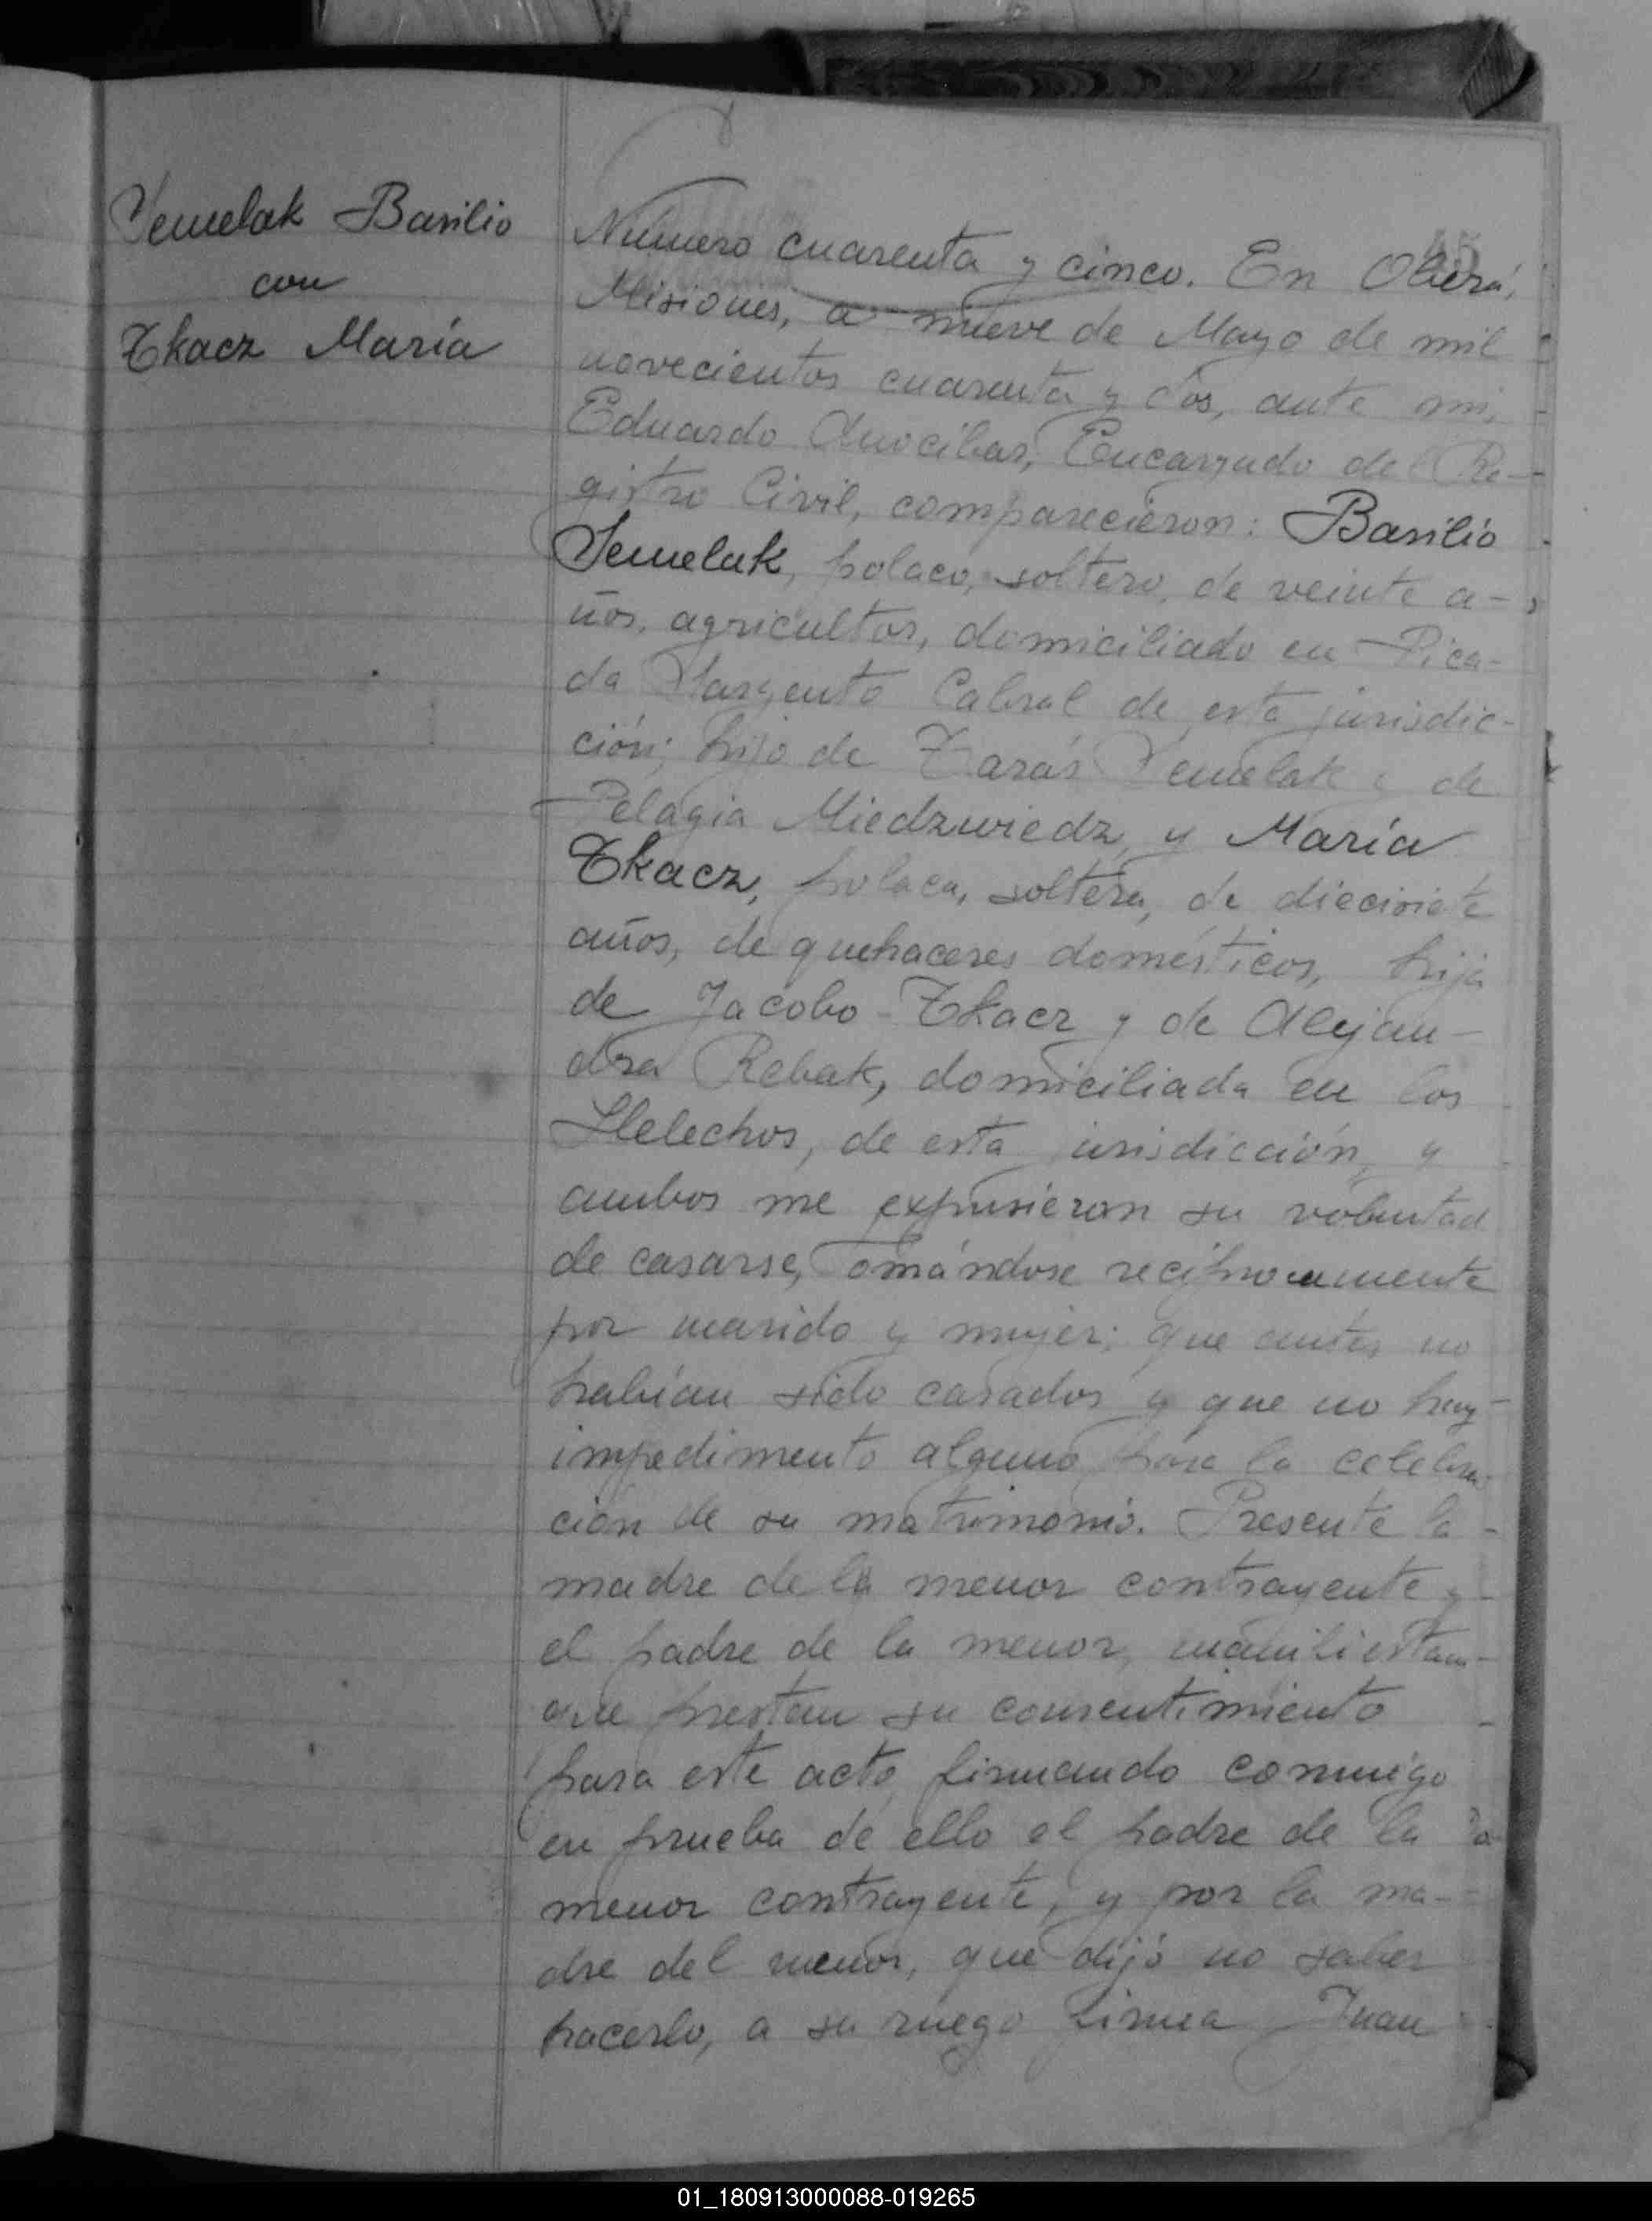 Yemelak Basilio
con
Tkacz María
45
Número cuarenta y cinco. En Oberá,
Misiones, a nueve de Mayo de mil
novecientos cuarenta y dos, ante mi,
Eduardo Encargado del Re-
gistro Civil, comparecieron: Basilio
Yemelak, polaco, soltero, de veinte a-
ños, agricultor, domiciliado en Pica-
da Sargento Cabral de esta jurisdic-
ción; hijo de Tarás Yemelak y de
Pelagia Miedzwiedz, y María
Tkacz, polaca, soltera, de diecisiete
años, de quehaceres domésticos, hija
de Jacobo Tkacz y de Alejan-
dra Rebak, domiciliada en los
Helechos, de esta jurisdicción, y
ambos me expusieron su voluntad
de casarse, tomándose recíprocamente
por marido y mujer; que antes no
habían sido casados y que no hay
impedimento alguno para la celebra-
ción de su matrimonio. Presente la
madre de la menor contrayente y
el padre de la menor, manifiestan
que prestan su consentimiento
para este acto, firmando conmigo
en prueba de ello el padre de la
menor contrayente, y por la ma-
dre del menor, que dijo no saber
hacerlo, a su ruego firma Juan
01_180913000088-019265